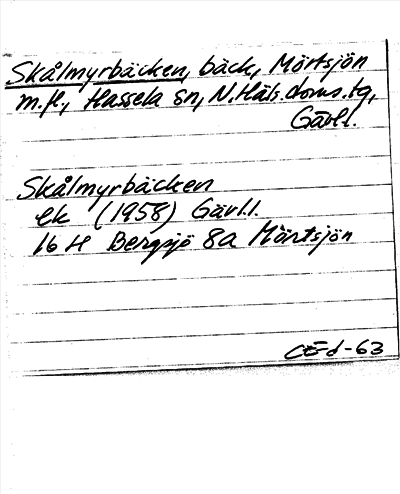 Skålmyrbäcken, bäck, Mörtsjön
m.fl., Hassela sn, N.Häls.doms.tg,
Gävl.l.
Skålmyrbäcken
ek (1958) Gävl.l.
16 H Bergsjö 8a Mörtsjön
CED-63